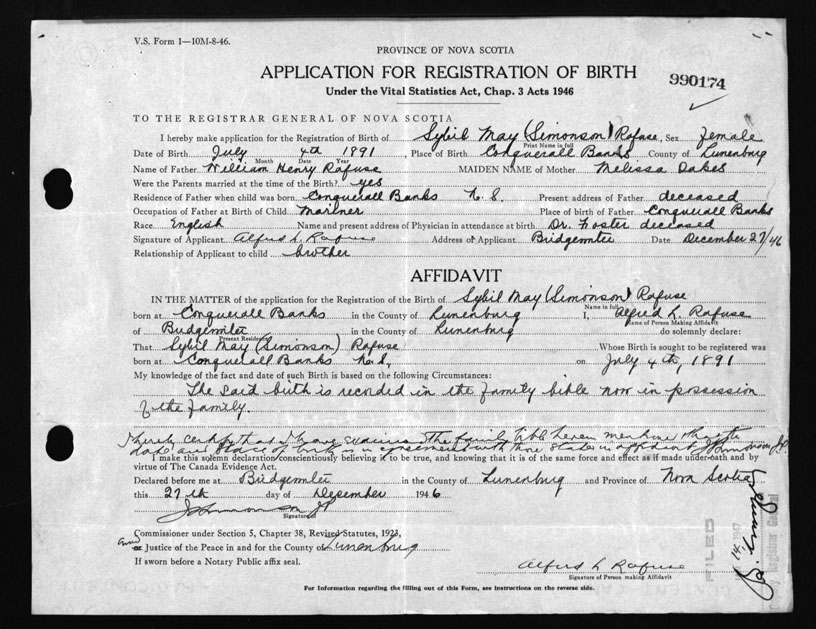 V.S. Form 1—10M-8-46.
PROVINCE OF NOVA SCOTIA
APPLICATION FOR REGISTRATION OF BIRTH
Under the Vital Statistics Act, Chap. 3 Acts 1946
990174
TO THE REGISTRAR GENERAL OF NOVA SCOTIA
I hereby make application for the Registration of Birth of Sybil May (Simonson) Rafuse, Sex female
Print Name in full
Date of Birth July 4th 1891, Place of Birth Conquerall Banks County of Lunenburg
Month Date Year
Name of Father William Henry Rafuse MAIDEN NAME of Mother Melissa Oakes
Were the Parents married at the time of the Birth? yes
Residence of Father when child was born Conquerall Banks N.S. Present address of Father deceased
Occupation of Father at Birth of Child Mariner Place of birth of Father Conquerall Banks
Race English Name and present address of Physician in attendance at birth Dr. Foster deceased
Signature of Applicant Alfred L. Rafuse Address of Applicant Bridgewater Date December 27/46
Relationship of Applicant to child brother
AFFIDAVIT
IN THE MATTER of the application for the Registration of the Birth of Sybil May (Simonson) Rafuse
Name in full
born at Conquerall Banks in the County of Lunenburg I, Alfred L. Rafuse
Name of Person Making Affidavit
of Bridgewater in the County of Lunenburg do solemnly declare:
Present Residence
That Sybil May (Simonson) Rafuse Whose Birth is sought to be registered was
born at Conquerall Banks N.S. on July 4th, 1891
My knowledge of the fact and date of such Birth is based on the following Circumstances:
The said birth is recorded in the family bible now in possession
of the family.
I hereby certify that I have examined the family bible herein mentioned & that the
date and place of birth is in agreement with those stated in affidavit
I make this solemn declaration conscientiously believing it to be true, and knowing that it is of the same force and effect as if made under oath and by
virtue of The Canada Evidence Act.
Declared before me at Bridgewater in the County of Lunenburg and Province of Nova Scotia
this 27th day of December 1946
Signature
Commissioner under Section 5, Chapter 38, Revised Statutes, 1923,
or Justice of the Peace in and for the County of Lunenburg
If sworn before a Notary Public affix seal.
Alfred L Rafuse
Signature of Person making Affidavit
FILED
1947
Registrar General
For Information regarding the filling out of this Form, see instructions on the reverse side.